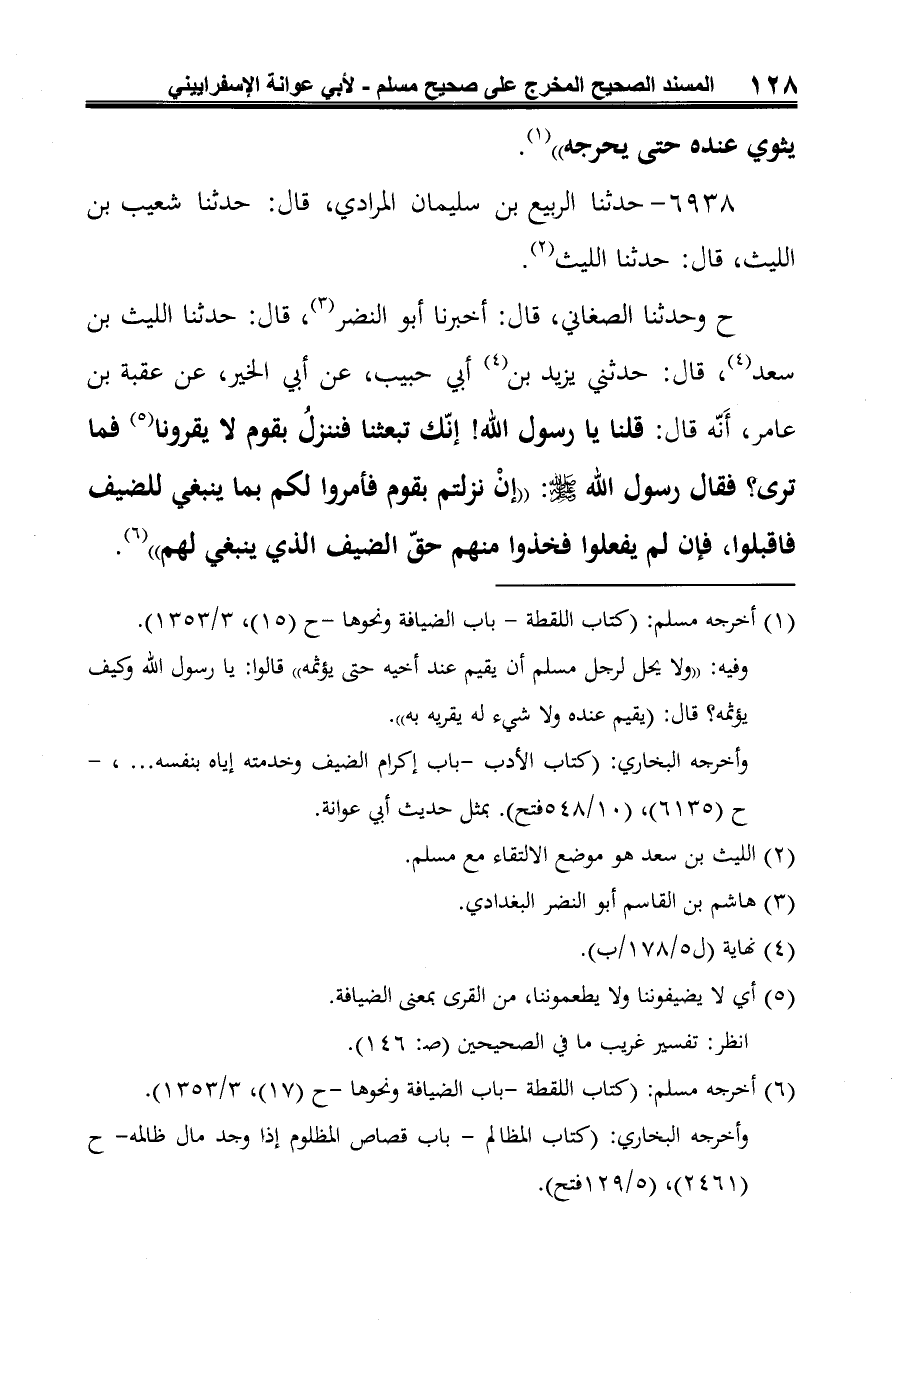 ١٢٨ المسند الصحيح المخرج على صحيح مسلم - لأبي عوانة الإسفراييني
يثوي عنده حتى يحرجه))(١).
٦٩٣٨- حدثنا الربيع بن سليمان المرادي، قال: حدثنا شعيب بن
الليث، قال: حدثنا الليث(٢).
ح وحدثنا الصغاني، قال: أخبرنا أبو النضر(٣)، قال: حدثنا الليث بن
سعد(٤)، قال: حدثني يزيد بن(٤) أبي حبيب، عن أبي الخير، عن عقبة بن
عامر، أَنّه قال: قلنا يا رسول الله! إنّك تبعثنا فننزلُ بقوم لا يقرونا(٥) فما
ترى؟ فقال رسول الله ﷺ: ((إنْ نزلتم بقوم فأمروا لكم بما ينبغي للضيف
فاقبلوا، فإن لم يفعلوا فخذوا منهم حقّ الضيف الذي ينبغي لهم))(٦).
(١) أخرجه مسلم: (كتاب اللقطة - باب الضيافة ونحوها -ح (١٥)، ١٣٥٣/٣).
وفيه: ((ولا يحل لرجل مسلم أن يقيم عند أخيه حتى يؤثمه)) قالوا: يا رسول الله وكيف
يؤثمه؟ قال: (يقيم عنده ولا شيء له يقريه به)).
وأخرجه البخاري: (كتاب الأدب -باب إكرام الضيف وخدمته إياه بنفسه... ، -
ح (٦١٣٥)، (٥٤٨/١٠فتح). بمثل حديث أبي عوانة.
(٢) الليث بن سعد هو موضع الالتقاء مع مسلم.
(٣) هاشم بن القاسم أبو النضر البغدادي.
(٤) نهاية (ل١٧٨/٥/ب).
(٥) أي لا يضيفوننا ولا يطعموننا، من القرى بمعنى الضيافة.
انظر: تفسير غريب ما في الصحيحين (ص: ١٤٦).
(٦) أخرجه مسلم: (كتاب اللقطة -باب الضيافة ونحوها -ح (١٧)، ١٣٥٣/٣).
وأخرجه البخاري: (كتاب المظالم - باب قصاص المظلوم إذا وجد مال ظالمه- ح
(٢٤٦١)، (١٢٩/٥فتح).